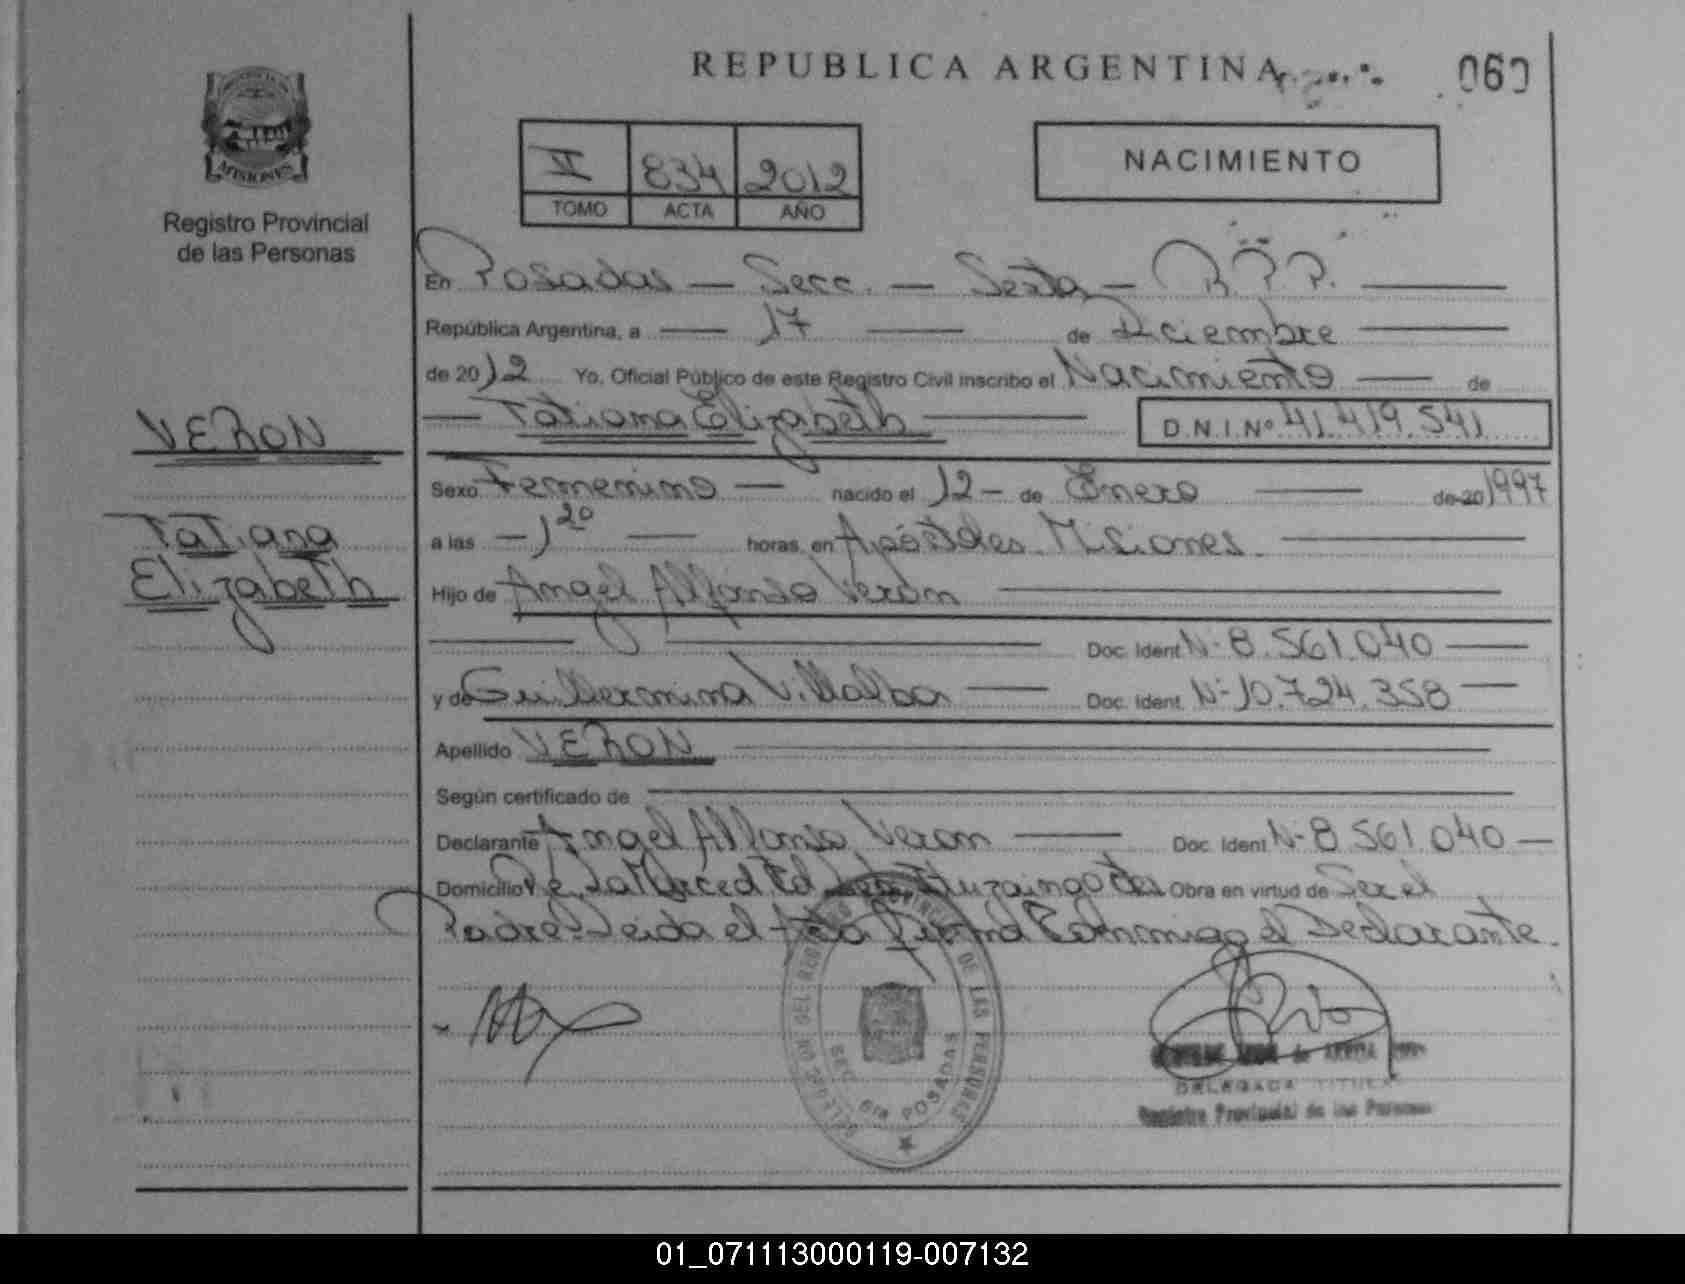 REPUBLICA ARGENTINA
060
MISIONES
Registro Provincial
de las Personas
VI 834 2012
TOMO ACTA AÑO
NACIMIENTO
En Posadas — Secc. — Sexta — R.P.P.
República Argentina, a — 17 — de Diciembre
de 2012 Yo, Oficial Público de este Registro Civil inscribo el Nacimiento — de
— Tatiana Elizabeth — D.N.I.Nº 41.419.541
VERON
Tatiana
Elizabeth
Sexo Femenino — nacido el 12 - de Enero — de 20 1997
a las — 1 20 — horas, en Apóstoles Misiones.
Hijo de Angel Alfonso Verón
Doc. Ident. Nº 8.561.040 —
y de Guillermina Villalba — Doc. Ident. Nº 10.724.358 —
Apellido VERON
Según certificado de
Declarante Angel Alfonso Veron — Doc. Ident. Nº 8.561.040 —
Domicilio De La Merced Ituzaingo Obra en virtud de Ser el
Padre. Leida el Acta Firma Conmigo el Declarante.
DELEGACION DEL REGISTRO PROVINCIAL DE LAS PERSONAS
SEC. 6ta POSADAS
de ARRUA
DELEGADA TITULAR
Registro Provincial de las Personas
01_071113000119-007132